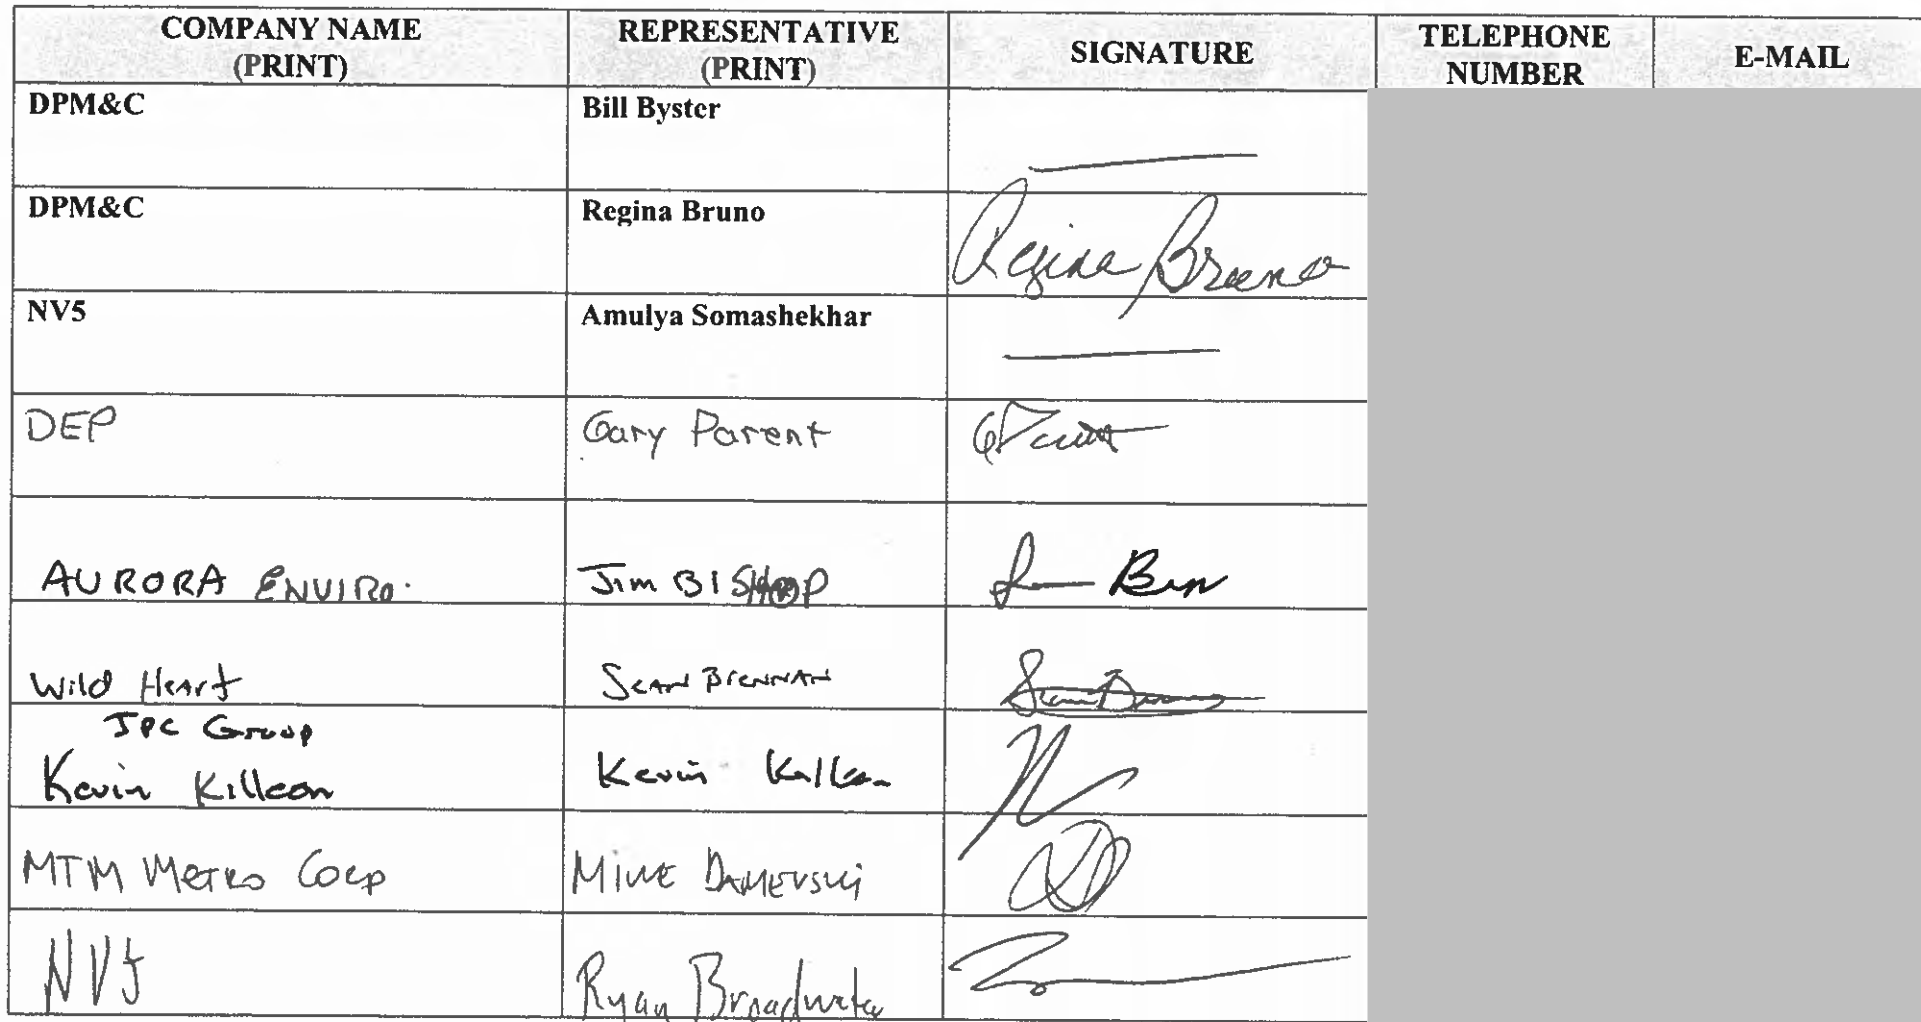 COMPANY NAME (PRINT) REPRESENTATIVE (PRINT) SIGNATURE TELEPHONE NUMBER E-MAIL
DPM&C Bill Byster
DPM&C Regina Bruno Regina Bruno
NV5 Amulya Somashekhar
DEP Gary Parent
AURORA ENVIRO. Jim BISHOP
Wild Heart SEAN BRENNAN
JPC Group
Kevin Killeen Kevin Killeen
MTM METRO CORP MIKE DAMEVSKI
NV5 Ryan Broadwater